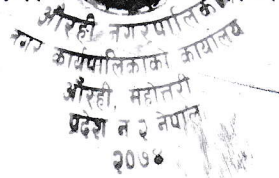 औरही नगरपालिका
नगर कार्यपालिकाको कार्यालय
औरही, महोत्तरी
प्रदेश नं २ नेपाल
२०७४